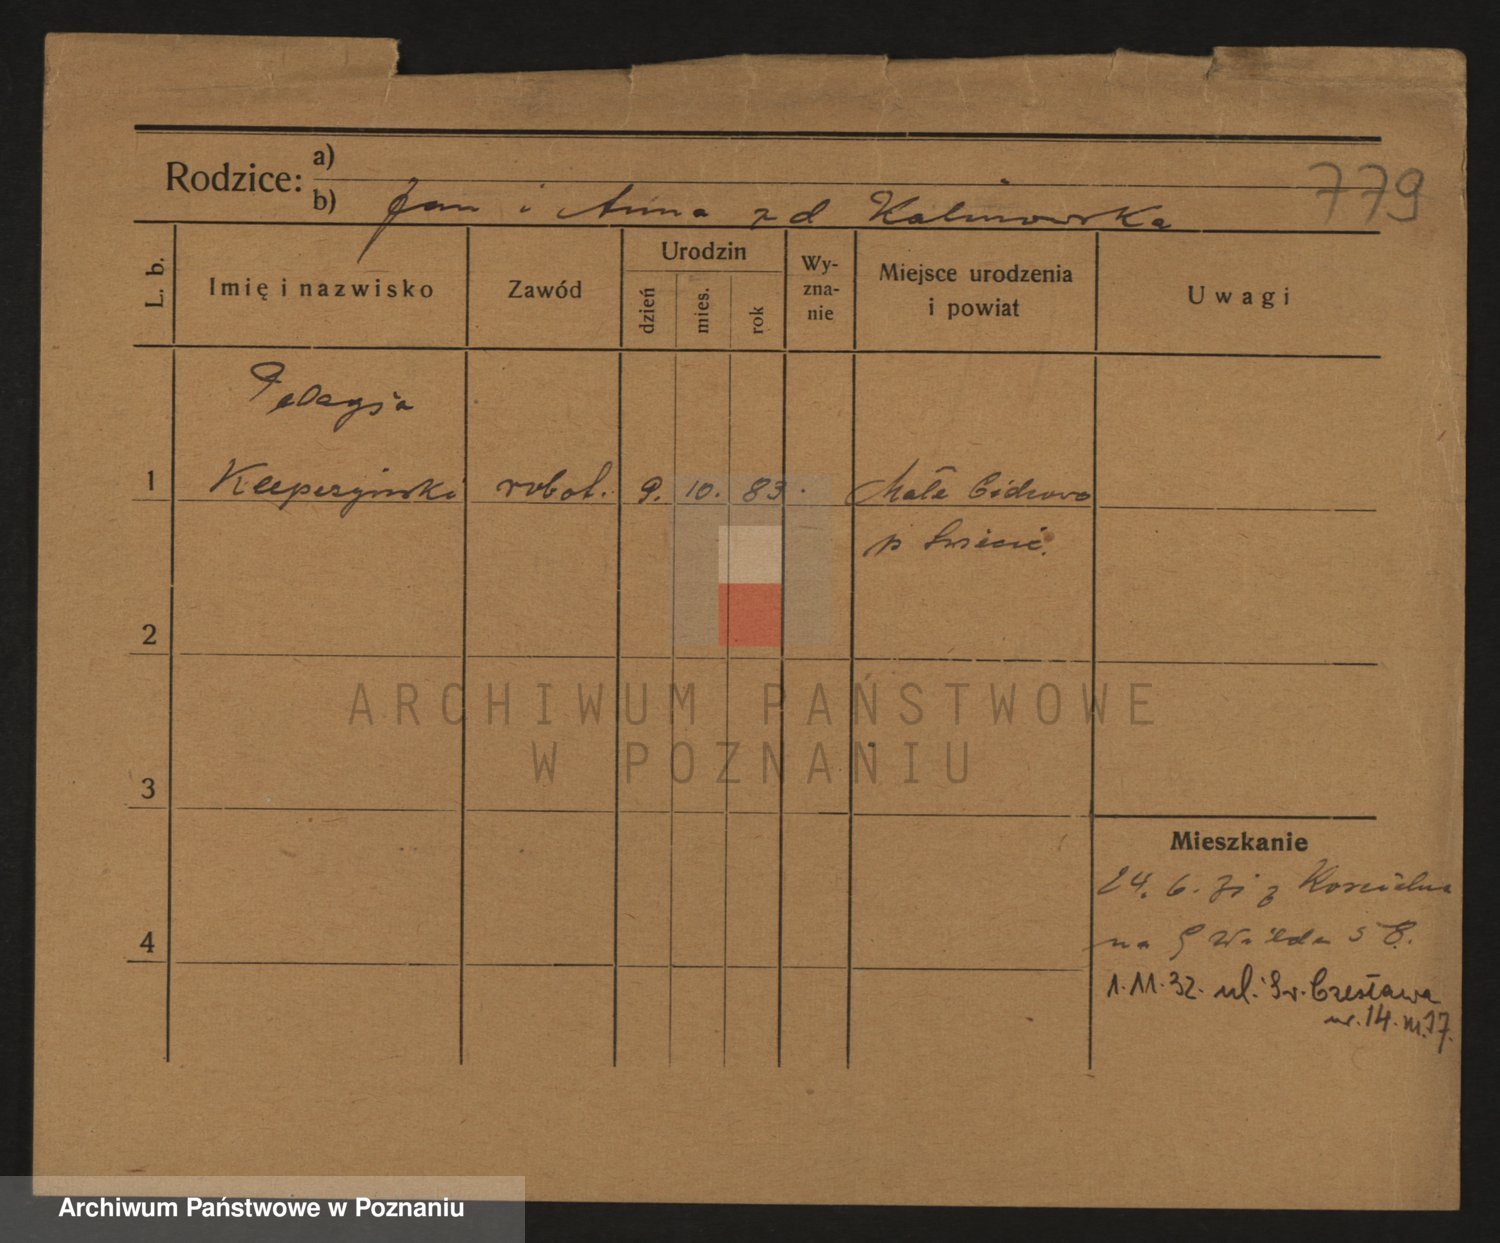 Rodzice: a)
b) Jan i Anna z d Kalinowska
779
L. b.
Imię i nazwisko
Zawód
Urodzin
dzień
mies.
rok
Wy-
zna-
nie
Miejsce urodzenia
i powiat
Uwagi
Pelagja
1 robot. 9. 10. 83. Małe
p
2
3
4
Mieszkanie
24. 6. z
na G Wilda 58.
1.11.32. ul. Św. Czesława
nr. 14. m. 17.
ARCHIWUM PAŃSTWOWE
W POZNANIU
Archiwum Państwowe w Poznaniu